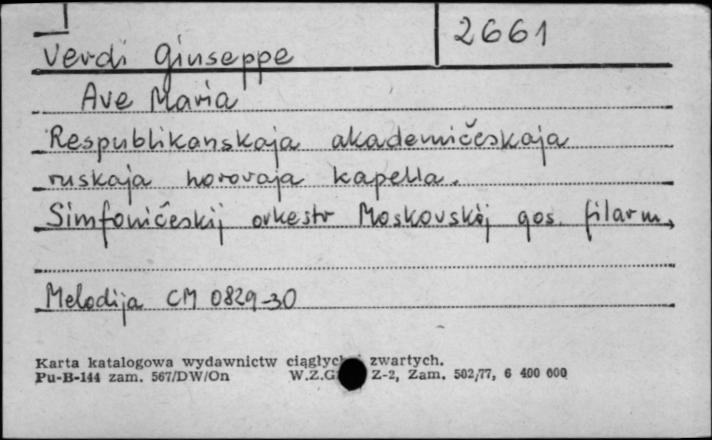 2661
Verdi Giuseppe
Ave Maria
Respublikanskaja akademičeskaja
ruskaja horovaja kapella.
Simfoničeskij orkestr Moskovskoj gos. filarm.
Melodija CM 0829-30
Karta katalogowa wydawnictw ciągłych zwartych.
Pu-B-144 zam. 567/DW/On W.Z.G. Z-2, Zam. 502/77, 6 400 000